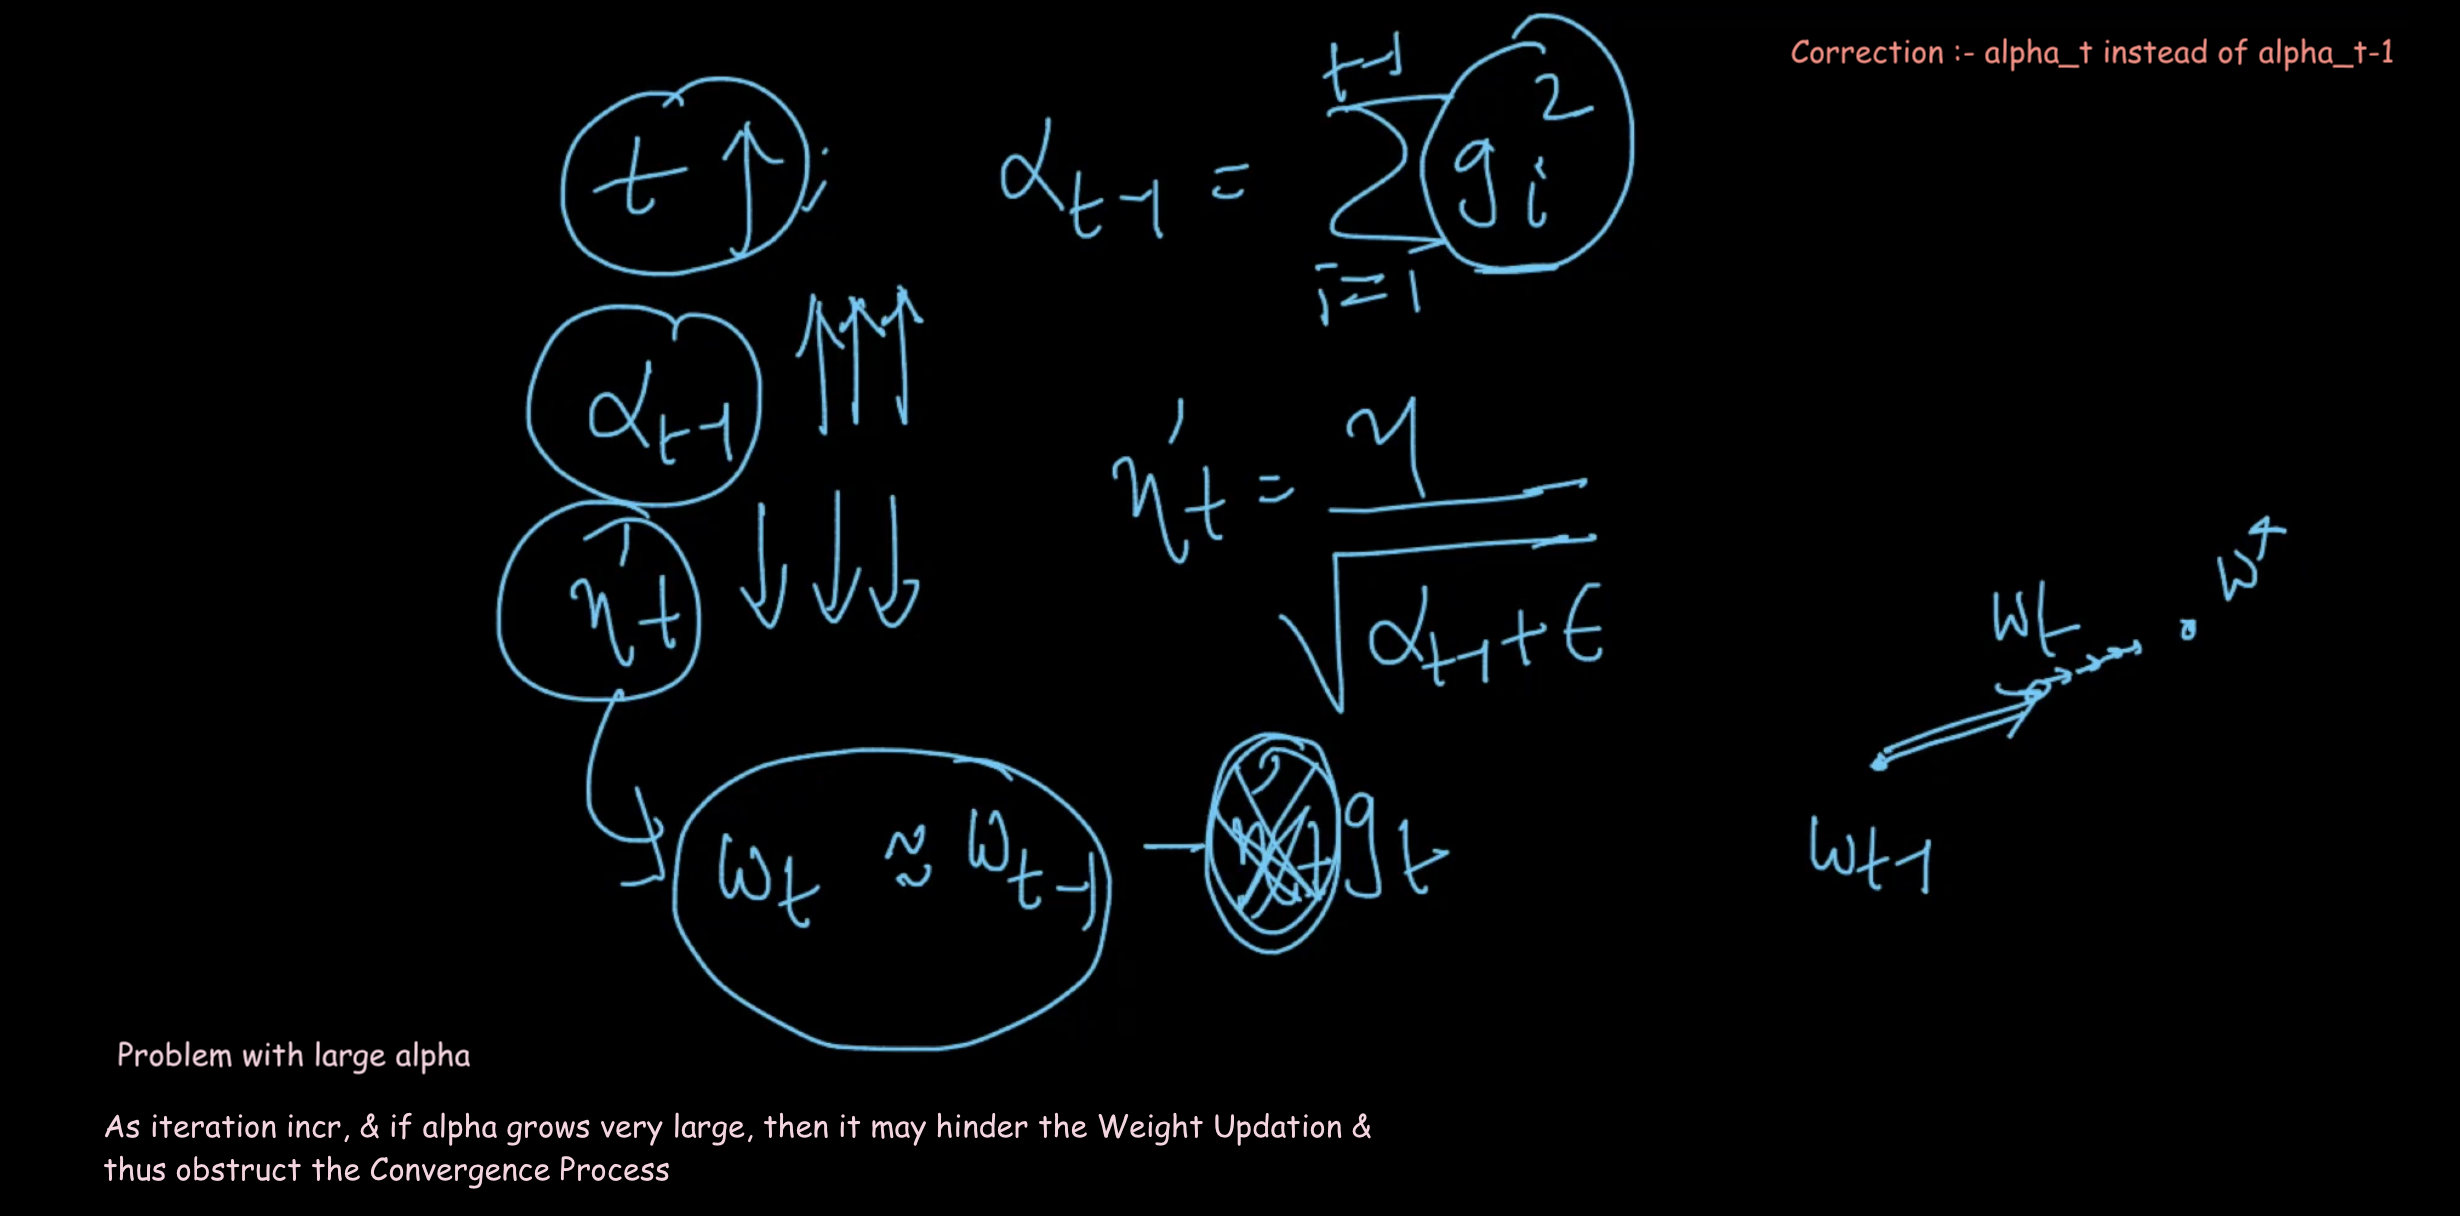 Correction :- alpha_t instead of alpha_t-1
t ↑ ;
α_{t-1} = Σ_{i=1}^{t-1} g_i^2
α_{t-1} ↑↑↑
η'_t = η / √(α_{t-1} + ε)
η'_t ↓↓↓
w_t ≈ w_{t-1} - η'_t g_t
w_{t-1}
w_t
w*
Problem with large alpha
As iteration incr, & if alpha grows very large, then it may hinder the Weight Updation &
thus obstruct the Convergence Process